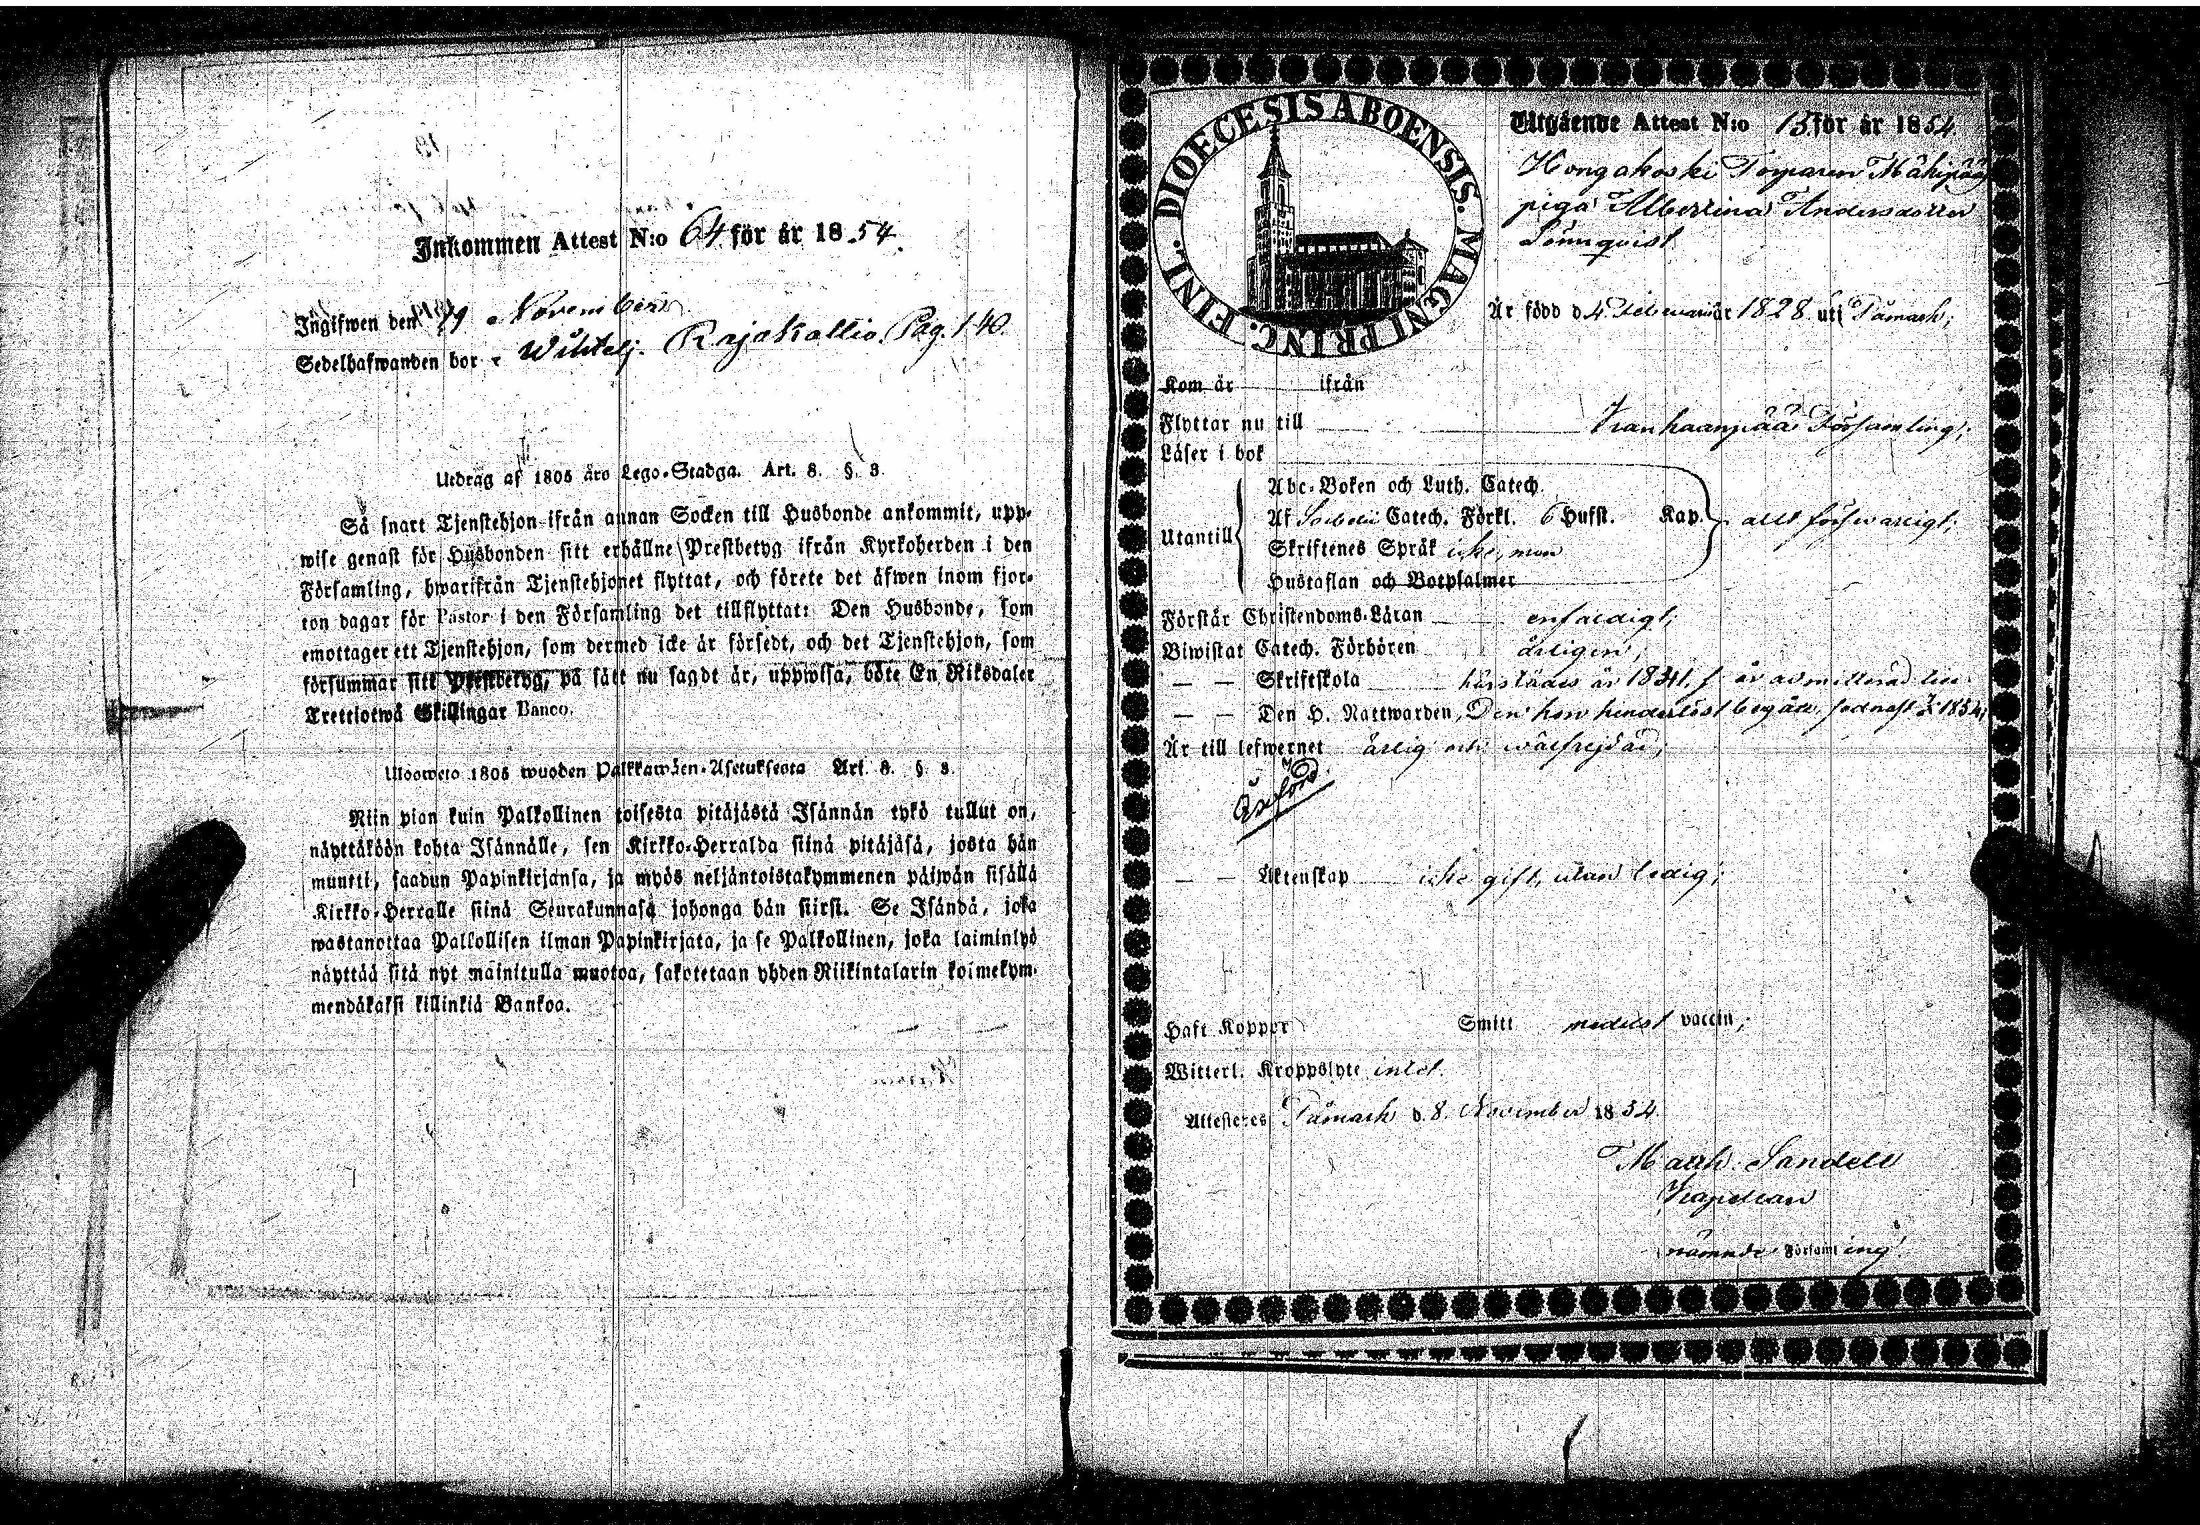 Inkommen Attest N:o 64 för år 1854.
Ingifwen den 19 November
Sedelhafwanden bor Wihtelj. Rajakallio. Pag. 140.
Utdrag af 1805 års Lego-Stadga. Art. 8. §. 3.
Så snart Tjenstehjon ifrån annan Socken till Husbonde ankommit, upp-
wise genast för Husbonden sitt erhållne Prestbetyg ifrån Kyrkoherden i den
Församling, hwarifrån Tjenstehjonet flyttat, och förete det äfwen inom fjor-
ton dagar för Pastor i den Församling det tillflyttat: Den Husbonde, som
emottager ett Tjenstehjon, som dermed icke är försedt, och det Tjenstehjon, som
försummar sitt Prestbetyg, på sätt nu sagdt är, uppwisa, böte En Riksdaler
Trettiotwå Skillingar Banco.
Ulosweto 1805 wuoden Palkkawäen-Asetuksesta Art. 8. §. 3.
Niin pian kuin Palkollinen toisesta pitäjästä Isännän tykö tullut on,
näyttäköön kohta Isännälle, sen Kirkko-Herralda siinä pitäjäsä, josta hän
muutti, saadun Papinkirjansa, ja myös neljäntoistakymmenen päiwän sisällä
Kirkko-Herralle siinä Seurakunnasa johonga hän siirsi. Se Isändä, joka
wastanottaa Palkollisen ilman Papinkirjata, ja se Palkollinen, joka laiminlyö
näyttää sitä nyt mainitulla muotoa, sakotetaan yhden Riikintalarin kolmekym-
mendäkaksi killinkiä Bankoa.
DIOECESIS ABOENSIS. MAGNI PRINC. FINL.
Utgående Attest N:o 13 för år 1854
Hongakoski Torparen
piga Albertina Andersdotter
Lönnqvist
Är född d. 4 Februari år 1828. uti Tämark;
Kom år ifrån
Flyttar nu till Kanhaanpää Församling;
Läser i bok
Utantill
Abc-Boken och Luth. Catech.
Af Svebelii Catech. Förkl. 6 Hufst. Kap. allt försvarligt;
Skriftenes Språk icke, men
Hustaflan och Botpsalmer
Förstår Christendoms-Läran enfaldigt;
Biwistat Catech. Förhören årligen;
— — Skriftskola härstädes år 1841. f är admitterad till
— — Den H. Nattwarden, Den hon hinderlöst begått, sednast 1854;
Är till lefwernet ärlig och wälfrejdad;
— — Äktenskap icke gift, utan ledig;
Haft Koppor Smitt medelst vaccin;
Witterl. Kroppslyte intet.
Attesteres Tämark d. 8. November 1854.
Matth. Sandell
Kapellan
nämnde Församling